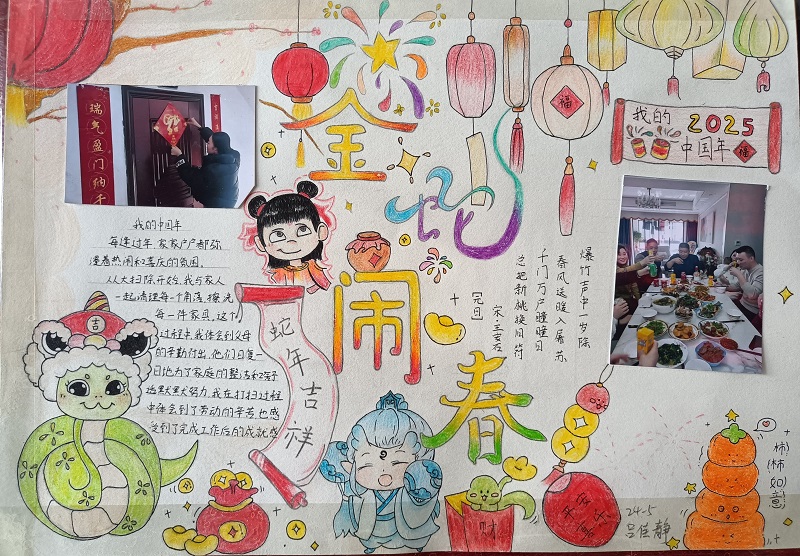 金蛇闹春
福
我的2025
中国年
福
瑞气盈门纳千
我的中国年
每逢过年,家家户户都弥
漫着热闹和喜庆的氛围。
从大扫除开始,我与家人
一起清理每一个角落,擦洗
每一件家具,这个
过程中,我体会到父母
的辛勤付出,他们日复一
日地为了家庭的整洁和
默默努力。我在打扫过程
中体会到了劳动的辛苦,也感
受到了完成工作后的成就感
吉
蛇年吉祥
爆竹声中一岁除
春风送暖入屠苏
千门万户曈曈日
总把新桃换旧符
宋·王安石
元日
财
柿柿如意
24-5
吕佳静